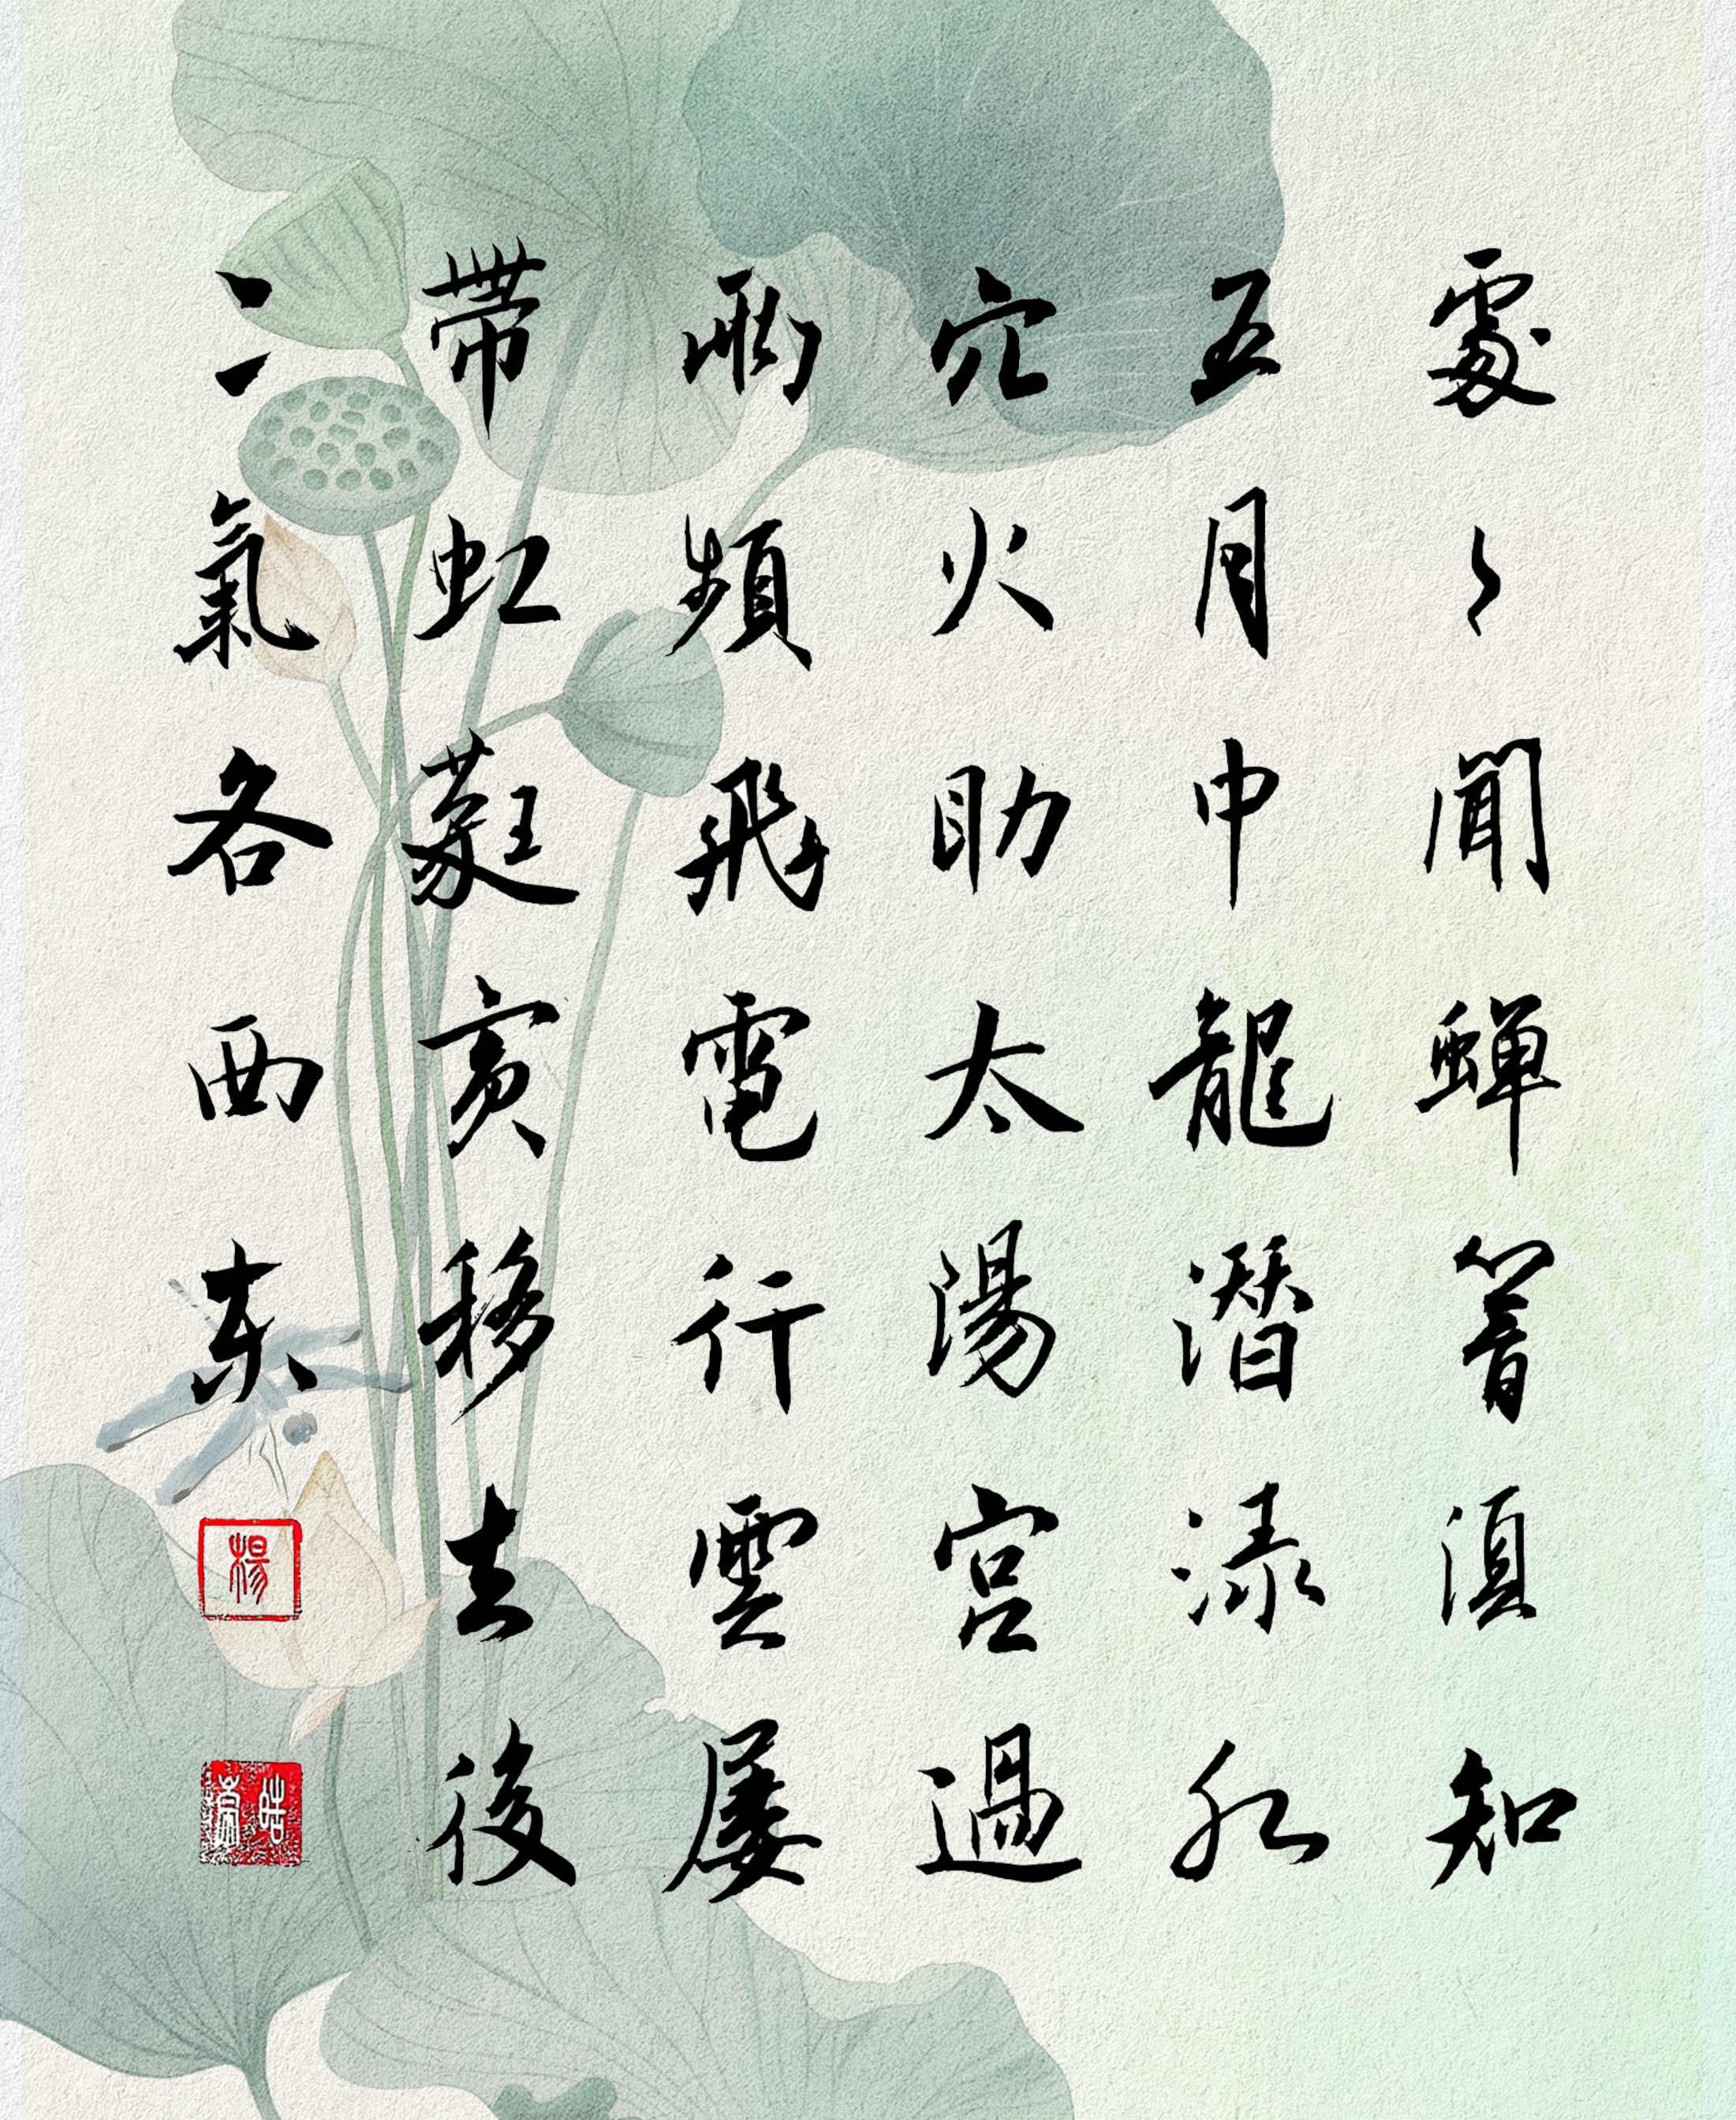 處々聞蟬響須知
五月中龍潛淥水
穴火助太陽宮過
雨頻飛電行雲屢
帶虹蕤賓移去後
二氣各西東
楊